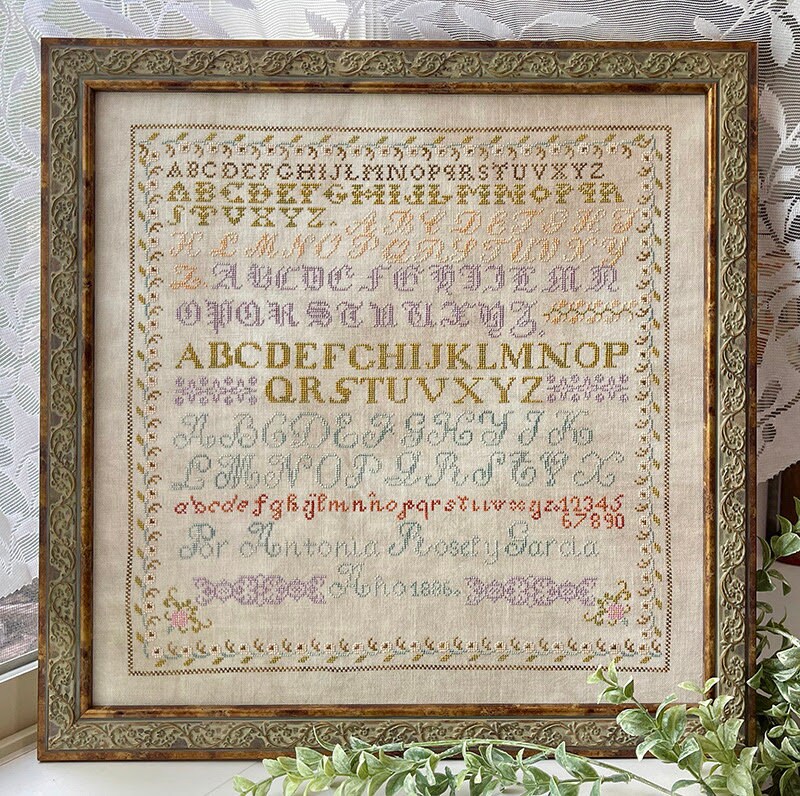 ABCDEFGHIJLMNOPQRSTUVXYZ
ABCDEFGHIJLMNOPQR
STVXYZ. ABCDEFGHIJ
KLMNOPQRSTUVXY
Z. ABCDEFGHIJLMN
OPQRSTUVXYZ.
ABCDEFCHIJKLMNOP
QRSTUVXYZ
ABCDEFGHYJK
LMNOPQRSTVX
abcdefghijlmnñopqrstuvxyz. 12345
67890
Por Antonia Roset y Garcia
Año 1886.